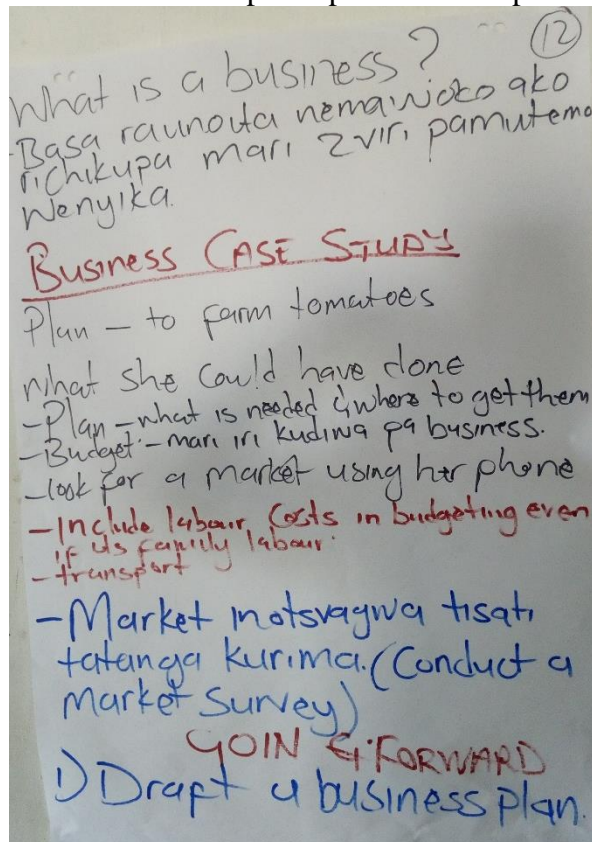 12
What is a business?
-Basa raunoita nemawoko ako
richikupa mari zviri pamutemo
wenyika.
Business CASE STUDY
Plan - to farm tomatoes
What she could have done
-Plan - what is needed & where to get them
-Budget - mari iri kudiwa pa business.
-look for a market using her phone
-Include labour costs in budgeting even
if its family labour.
-transport
-Market inotsvagwa tisati
tatanga kurima. (Conduct a
market survey)
GOIN G FORWARD
1) Draft a business plan.